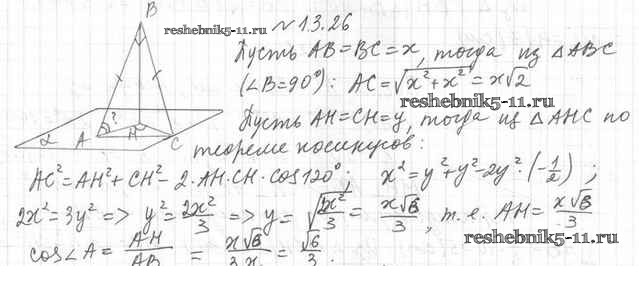 B
reshebnik5-11.ru
№ 13.26
Пусть AB=BC=x, тогда из △ABC
(∠B=90°): AC=√(x²+x²)=x√2
reshebnik5-11.ru
Пусть AH=CH=y, тогда из △AHC по
теореме косинусов:
α A ? H C
AC²=AH²+CH²-2·AH·CH·cos120°; x²=y²+y²-2y²·(-1/2);
2x²=3y² => y²=2x²/3 => y=√(2x²/3)=x√6/3, т.е. AH=x√6/3
reshebnik5-11.ru
cos∠A=AH/AB=x√6/3x=√6/3.